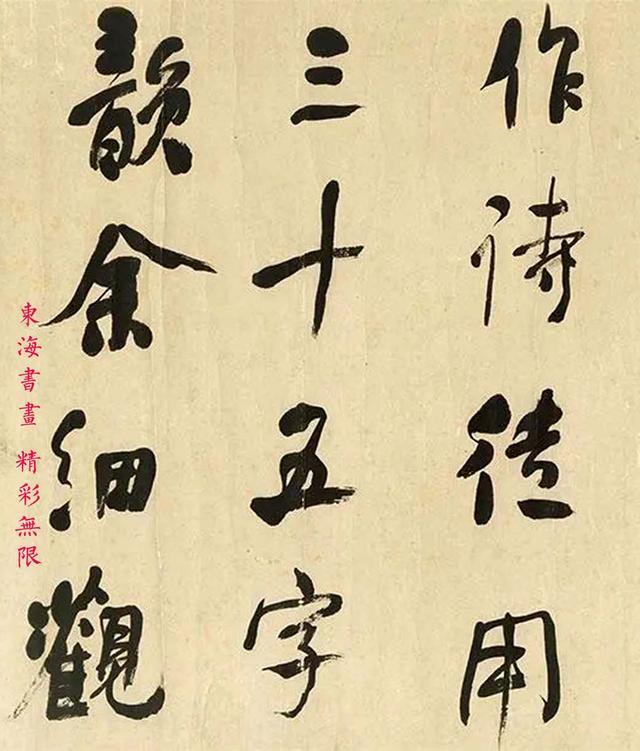 作詩用
三十五字
韻余細觀
東海書畫 精彩無限